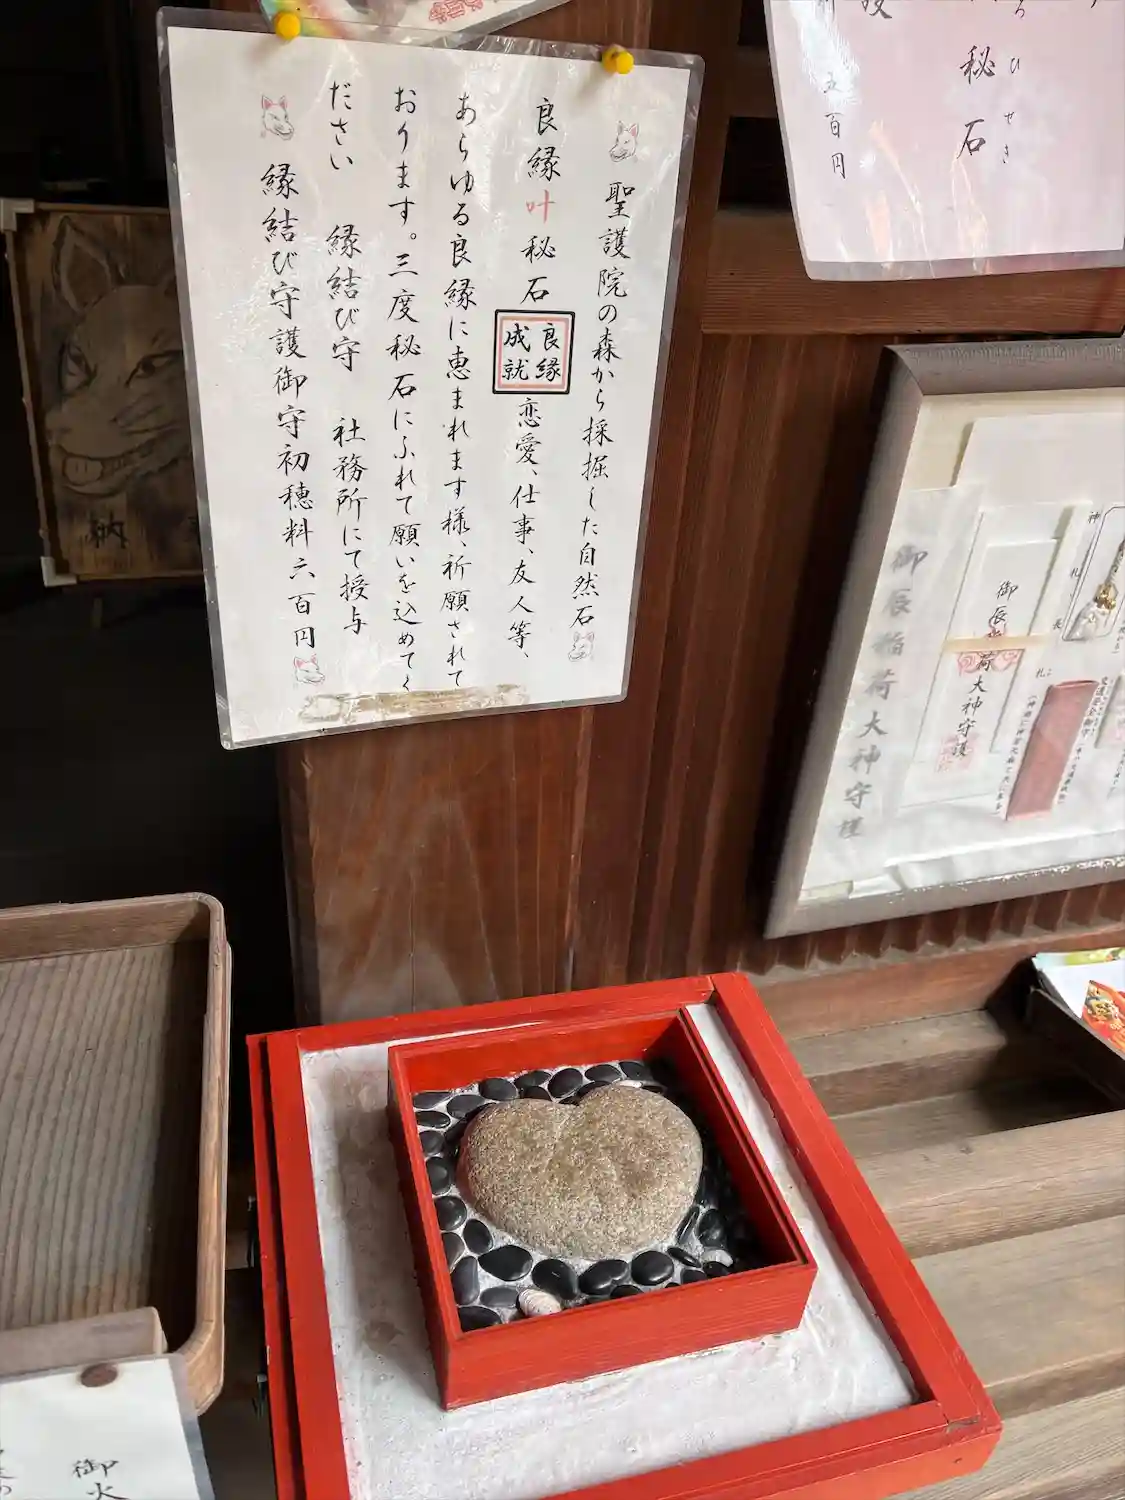 聖護院の森から採掘した自然石
良縁叶秘石
良縁
成就
恋愛、仕事、友人等、
あらゆる良縁に恵まれます様、祈願されて
おります。三度秘石にふれて願いを込めてく
ださい 縁結び守 社務所にて授与
縁結び守護御守初穂料六百円
ひせき
秘石
五百円
御辰稲荷大神守護
御辰稲荷大神守護
納
御火